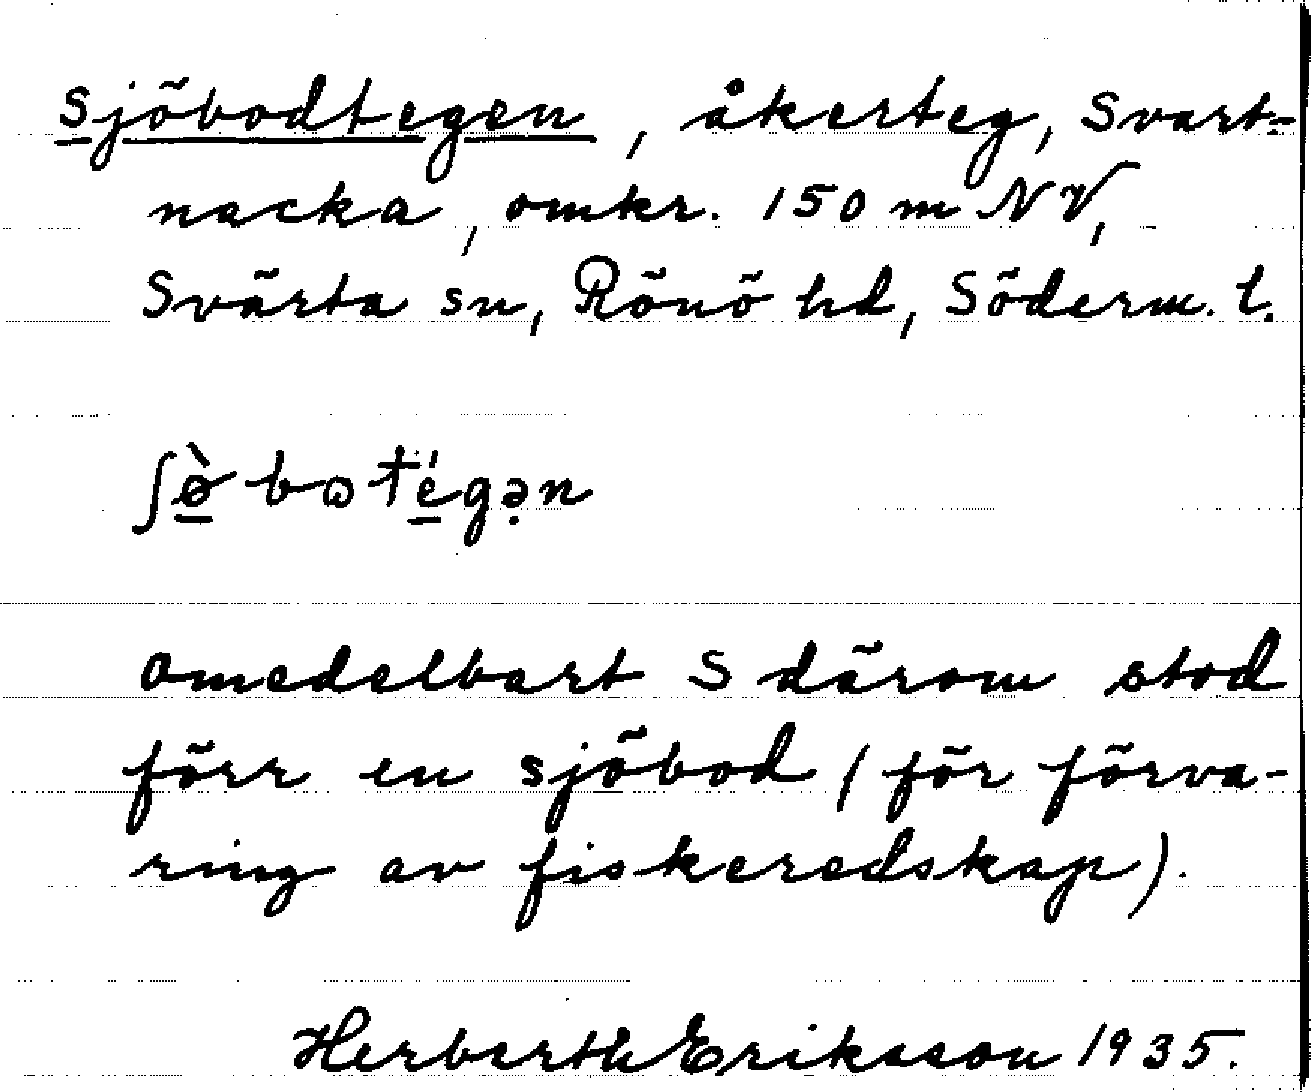 Sjöbodtegen, åkerteg, Svart-
nacka, omkr. 150 m NV,
Svärta sn, Rönö hd, Söderm. l.
omedelbart S därom stod
förr en sjöbod (för förva-
ring av fiskeredskap).
Herberth Eriksson 1935.